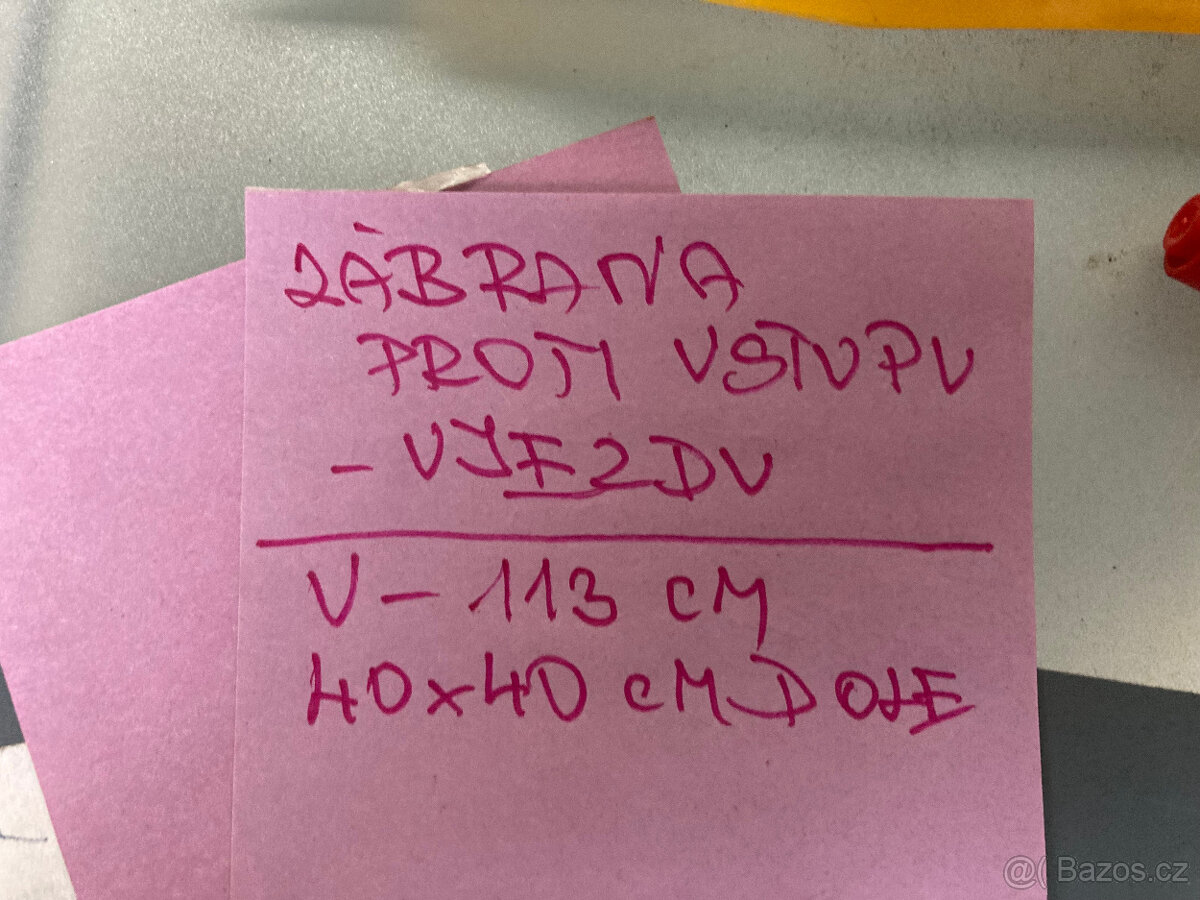 ZÁBRANA
PROTI VSTUPU
- VJEZDU
V - 113 CM
40x40 CM DOLE
@( Bazos.cz